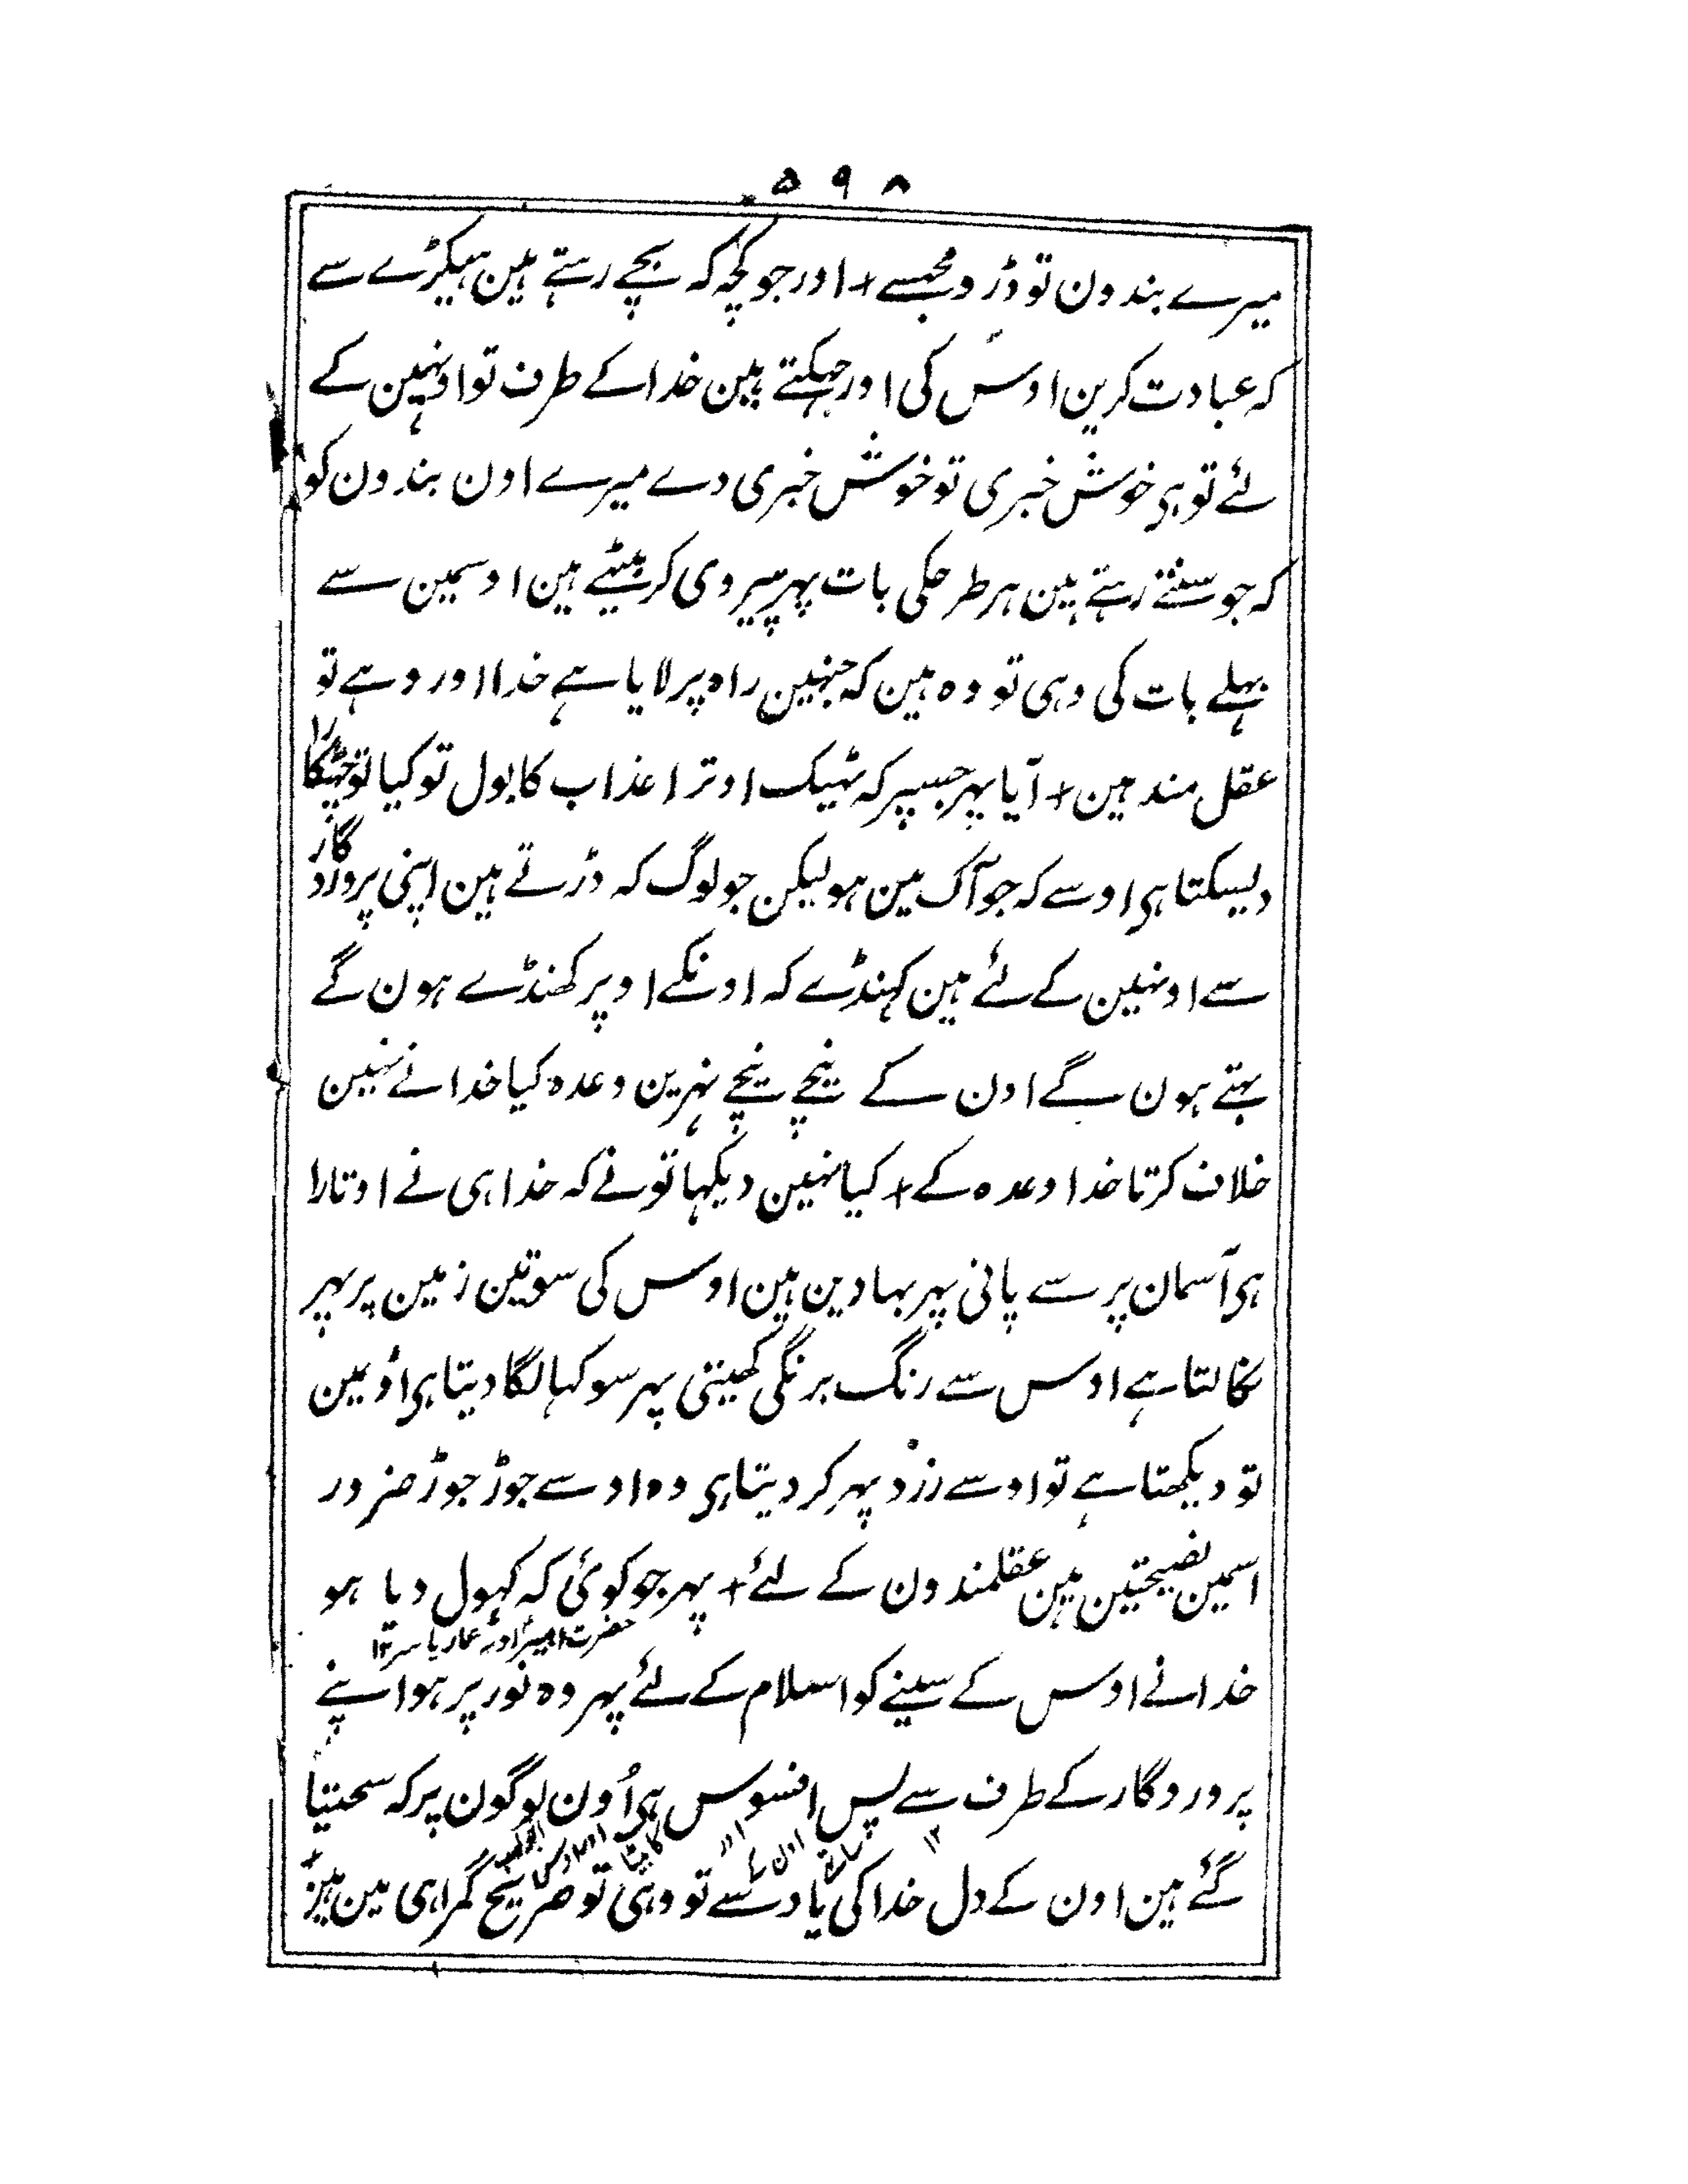 ۵۹۸
میرے بندون تو ڈرو مجہسے + اور جو کچہ کہ بچے رہتے ہین ہیکڑے سے
کہ عبادت کرین اوس کی اور جہکتے ہین خدا کے طرف تو اونہین کے
لئے تو ہی خوش خبری تو خوش خبری دے میرے اون بندون کو
کہ جو سنتے رہتے ہین ہر طرحکی بات پہر پیروی کر بیٹہے ہین اوسمین سے
بہلے بات کی وہی تو وہ ہین کہ جنہین راہ پر لایا ہے خدا اور وہے تو
عقل مند ہین + آیا پہر جسپر کہ ٹہیک اوترا عذاب کا بول تو کیا تو چہٹکارا
دیسکتا ہی اوسے کہ جو آگ مین ہو لیکن جو لوگ کہ ڈرتے ہین اپنی پروردگار
سے اونہین کے لئے ہین کہنڈے کہ اونکے اوپر کھنڈے ہون گے
بہتے ہون گے اون کے نیچے نیچے نہرین وعدہ کیا خدا نے نہین
خلاف کرتا خدا وعدہ کے + کیا نہین دیکہا تو نے کہ خدا ہی نے اوتارا
ہی آسمان پر سے پانی پہر بہا دین ہین اوس کی سوتین زمین پر پہر
نکالتا ہے اوس سے رنگ برنگی کھیتی پہر سوکہا لگا دیتا ہی اومین
تو دیکھتا ہے تو اوسے زرد پہر کر دیتا ہی وہ اوسے جوڑ جوڑ ضرور
اسمین نصیحتین ہین عقلمندون کے لئے + پہر جو کوئی کہ کہول دیا ہو
حضرت امیر اور عمار یاسر ۱۲
خدا نے اوس کے سینے کو اسلام کے لئے پہر وہ نور پر ہو اپنے
پروردگار کے طرف سے پس افسوس ہی اُون لوگون پر کہ سختیا
گئے ہین اون کے دل خدا کی یاد سے تو وہی تو صریح گمراہی مین ہین +